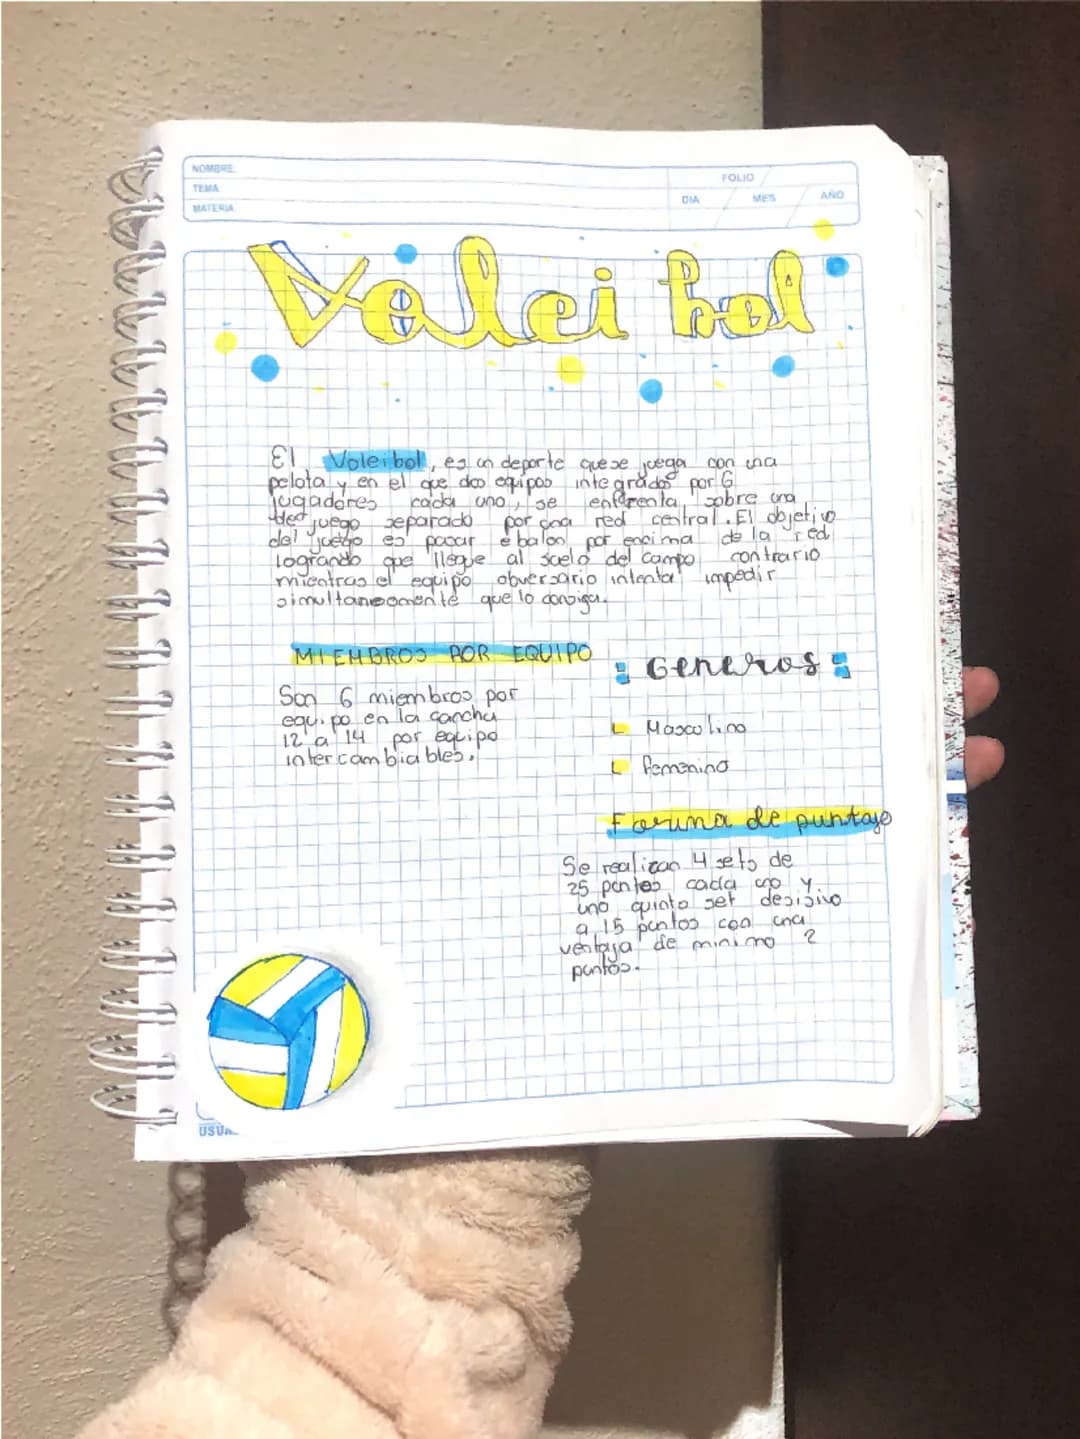 NOMBRE:
TEMA
MATERIA
FOLIO
DIA MES AÑO
Voleibol
El Voleibol, es un deporte que se juega con una
pelota y en el que dos equipos integrados por 6
jugadores cada uno, se enfrenta sobre una
juego separado por una red central. El objetivo
del juego es pasar e balon por encima de la red
logrando que llegue al suelo del campo contrario
mientras el equipo obversario intenta impedir
simultaneamente que lo consiga.
MIEMBROS POR EQUIPO
Son 6 miembros por
equipo en la cancha
12 a 14 por equipo
intercambiables.
Generos
Masculino
Femenino
Forma de puntaje
Se realizan 4 sets de
25 puntos cada uno y
uno quinto set desisivo
a 15 puntos con una
ventaja de minimo 2
puntos.